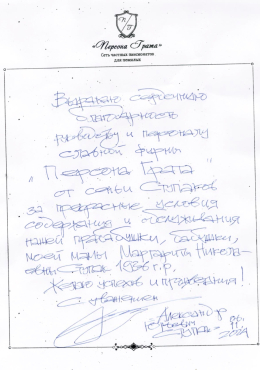 «Персона Грата»
Сеть частных пансионатов
для пожилых
Выражаю сердечную
благодарность
руководству и персоналу
славной фирмы
"Персона Грата"
от семьи Ступаков
за прекрасные условия
содержания и обслуживания
нашей прабабушки, бабушки,
моей мамы Маргариты Никола-
евны Ступак 1936 г.р.
Желаю успехов и процветания!
С уважением
Александр
Ступак